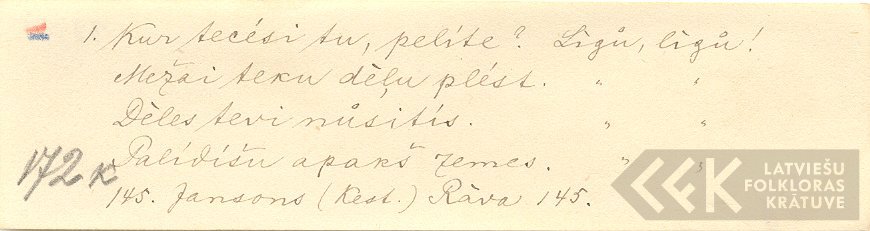 1. Kur tecési tu, pelíte? Līgů, līgů!
Mežai teku dēļu plést. " "
Dēles tevi nůsitís. " "
Palídíšu apakš zemes. " "
172 k
145. Jansons (Kest.) Rāva 145.
LATVIEŠU
FOLKLORAS
KRĀTUVE